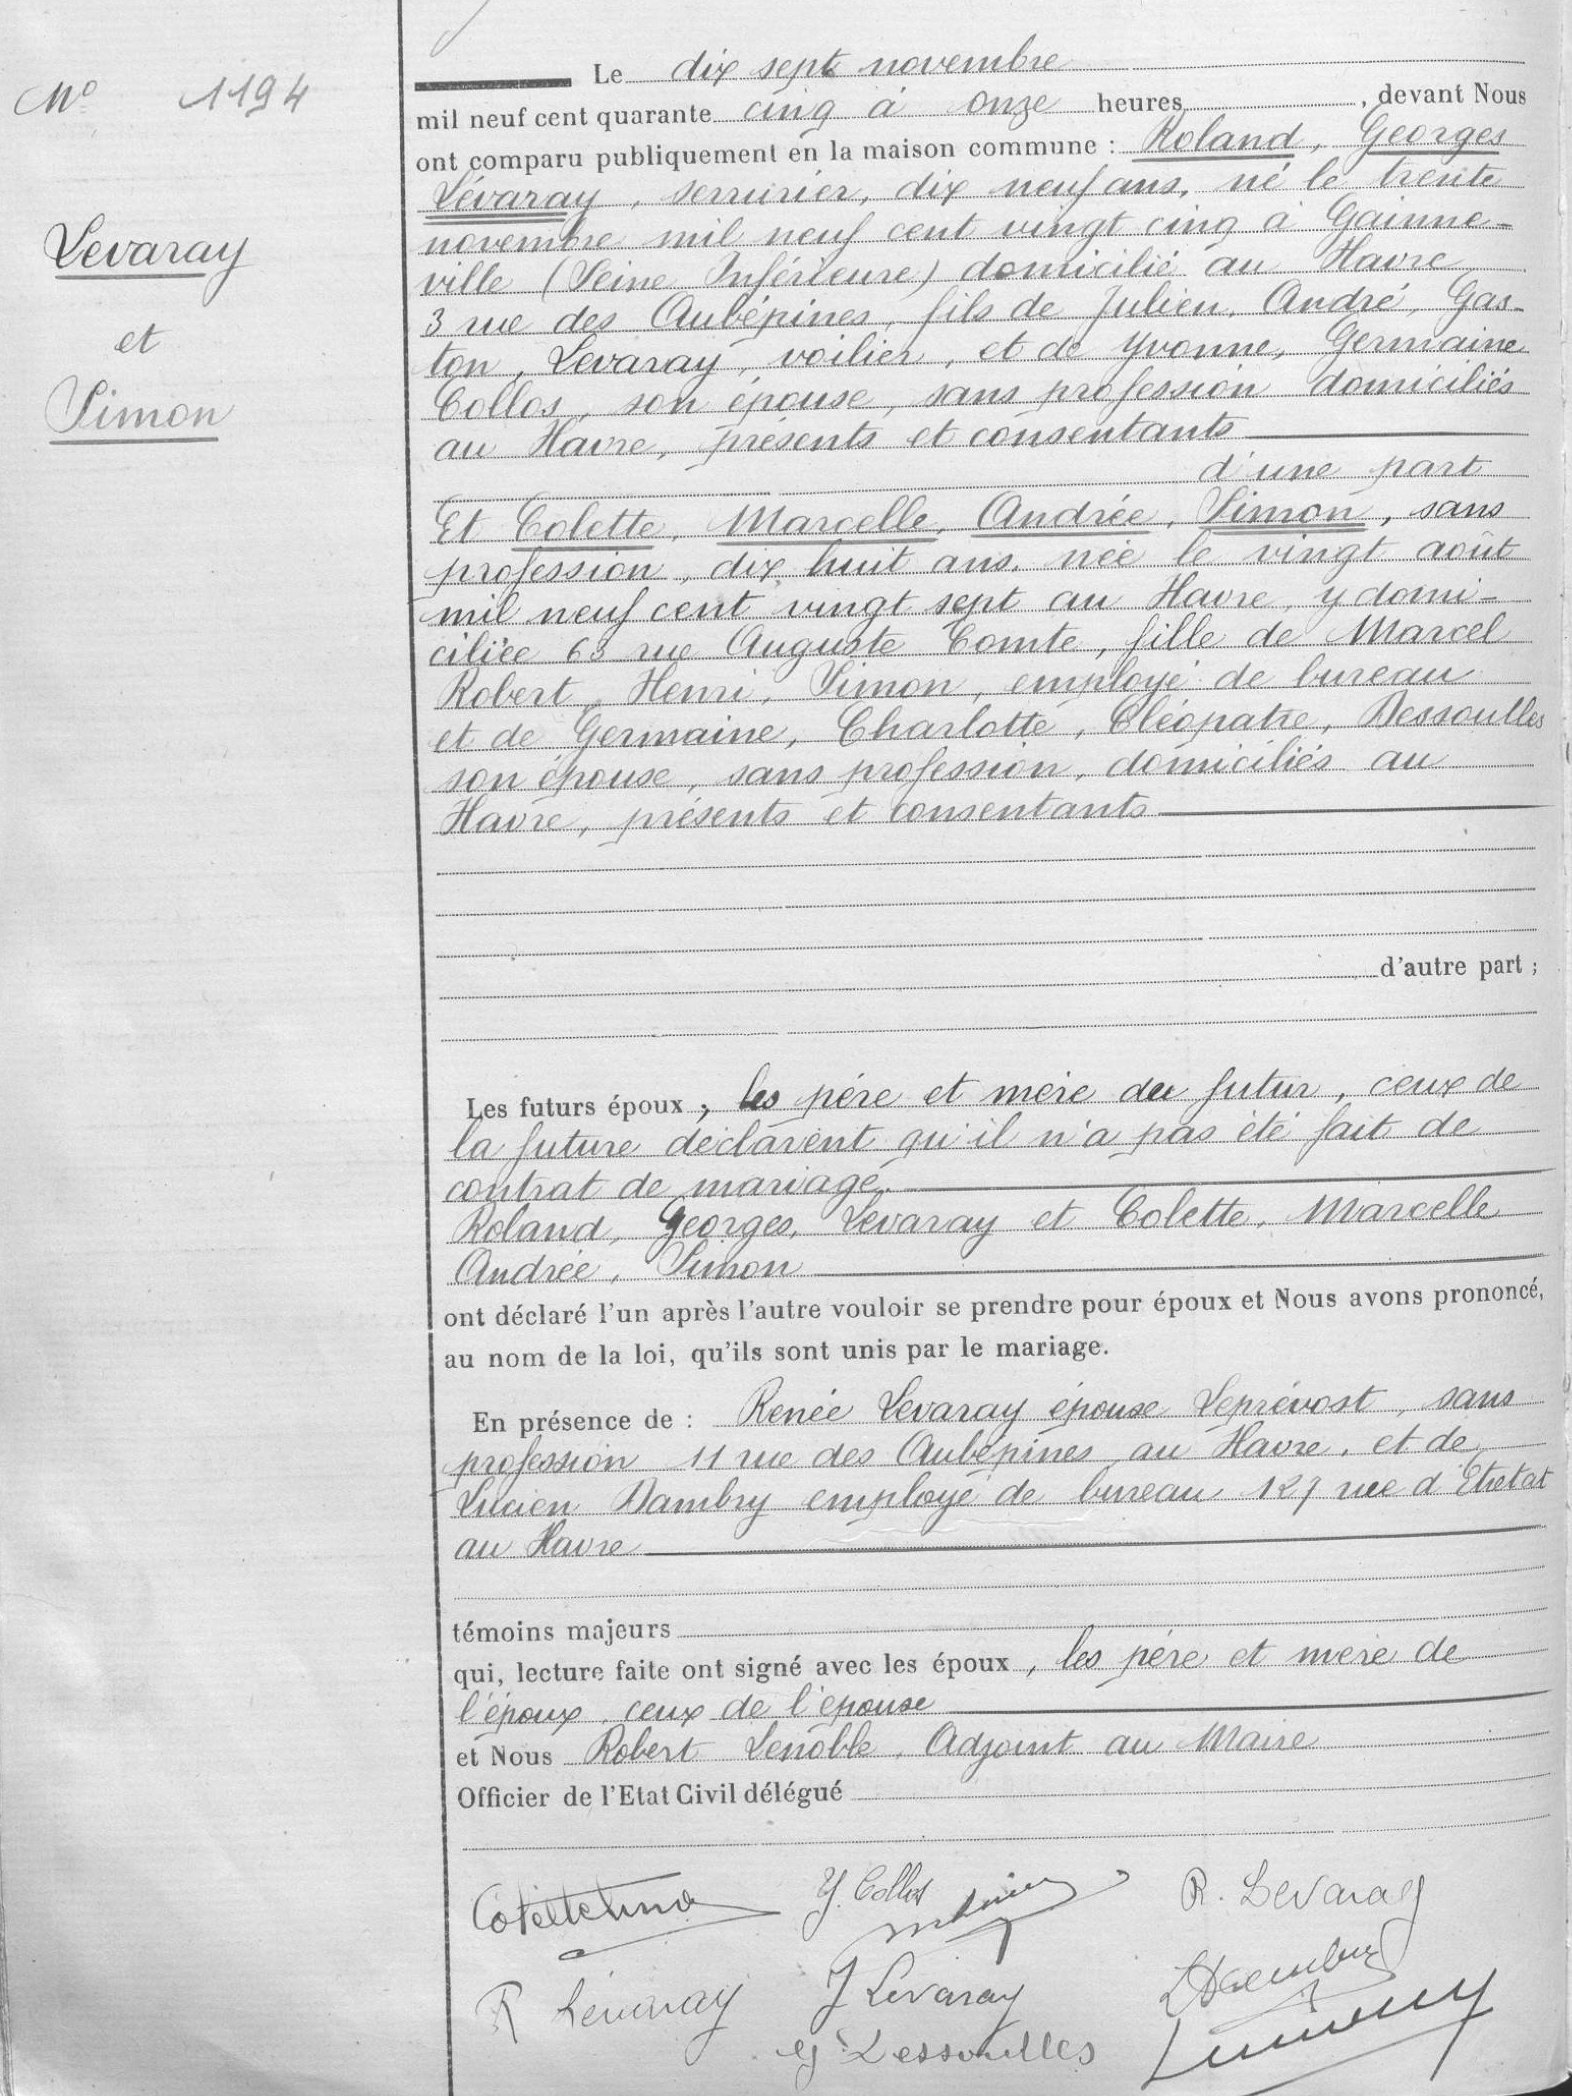 Le dix sept novembre
mil neuf cent quarante cinq à onze heures, devant Nous
ont comparu publiquement en la maison commune : Roland, Georges
Lévaray, serrurier, dix neuf ans, né le trente
novembre mil neuf cent vingt cinq à Gainne-
ville (Seine Inférieure) domicilié au Havre
3 rue des Aubépines, fils de Julien, André, Gas-
ton, Levaray, voilier, et de Yvonne, Germaine
Collos, son épouse, sans profession domiciliés
au Havre, présents et consentants
d'une part
Et Colette, Marcelle, Andrée, Simon, sans
profession, dix huit ans, née le vingt août
mil neuf cent vingt sept au Havre, y domi-
ciliée 63 rue Auguste Comte, fille de Marcel
Robert, Henri, Simon, employé de bureau
et de Germaine, Charlotte, Cléopatre, Dessoulles
son épouse, sans profession, domiciliés au
Havre, présents et consentants
d'autre part ;
Les futurs époux, les père et mère du futur, ceux de
la future déclarent qu'il n'a pas été fait de
contrat de mariage.
Roland, Georges, Levaray et Colette, Marcelle
Andrée, Simon
ont déclaré l'un après l'autre vouloir se prendre pour époux et Nous avons prononcé,
au nom de la loi, qu'ils sont unis par le mariage.
En présence de : Renée Levaray épouse Leprévost, sans
profession 11 rue des Aubépines au Havre, et de
Lucien Dambry employé de bureau 127 rue d'Etretat
au Havre
témoins majeurs
qui, lecture faite ont signé avec les époux, les père et mère de
l'époux, ceux de l'épouse
et Nous Robert Lenoble, Adjoint au Maire
Officier de l'Etat Civil délégué
Y. Collos
R. Levaray
R Lévaray
J Levaray
g Dessoulles
No 1194
Levaray
et
Simon